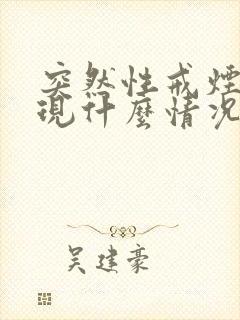 突然性戒煙
現什麼情況
吳建豪